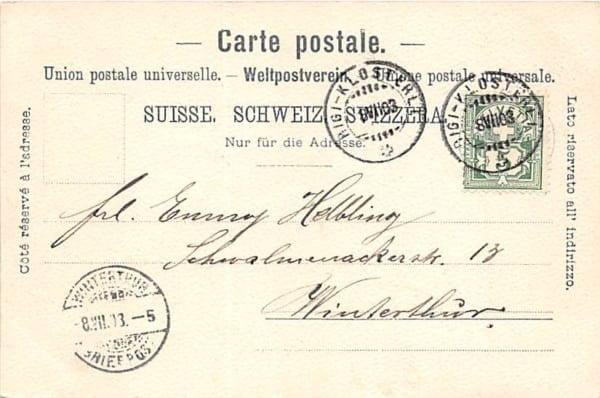 — Carte postale. —
Union postale universelle. — Weltpostverein. — Unione postale universale.
SUISSE. SCHWEIZ. SVIZZERA.
Nur für die Adresse.
Côté réservé à l'adresse.
Lato riservato all' indirizzo.
RIGI-KLÖSTERLI
8VII03
RIGI-KLÖSTERLI
8VII03
5
frl. Emmy Helbling
Schwalmenackerstr. 13
Winterthur
WINTERTHUR
8.VII.03.–5
BRIEFPOST